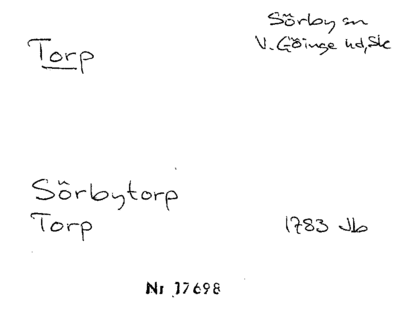 Torp
Sörby sn
V. Göinge hd, Sk
Sörbytorp
Torp
1783 Jb
Nr 17698